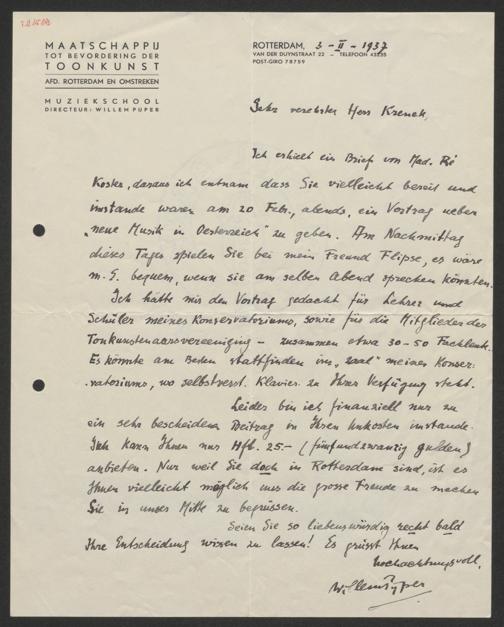 MAATSCHAPPIJ
TOT BEVORDERING DER
TOONKUNST
AFD. ROTTERDAM EN OMSTREKEN
MUZIEKSCHOOL
DIRECTEUR: WILLEM PIJPER
ROTTERDAM, 3-II-1937
VAN DER DUYNSTRAAT 22 – TELEFOON
POST-GIRO 78759
Sehr verehrter Herr Krenek,
Ich erhielt ein Brief von Mad. Ré
Koster, daraus ich entnam dass Sie vielleicht bereit und
imstande waren am 20 Febr., abends, ein Vortrag ueber
„neue Musik in Oesterreich" zu geben. Am Nachmittag
dieses Tages spielen Sie bei mein Freund Flipse, es wäre
m. E. bequem, wenn sie am selben Abend sprechen könnten.
Ich hätte mir den Vortrag gedacht für Lehrer und
Schüler meines Konservatoriums, sowie für die Mitglieder der
Toonkunstenaarsvereeniging – zusammen etwa 30-50 Fachleute.
Es könnte am Besten stattfinden im „zaal" meines Konser-
vatoriums, wo selbstverst. Klavier zu Ihrer Verfügung steht.
Leider bin ich finanziell nur zu
ein sehr bescheidener Beitrag in Ihren Unkosten imstande.
Ich kann Ihnen nur Hfl. 25.- (fünfundzwanzig gulden)
anbieten. Nur weil Sie doch in Rotterdam sind, ist es
Ihnen vielleicht möglich uns die grosse Freude zu machen
Sie in unser Mitte zu begrüssen.
Seien Sie so liebenswürdig recht bald
Ihre Entscheidung wissen zu lassen! Es grüsst Ihnen
hochachtungsvoll,
Willem Pijper